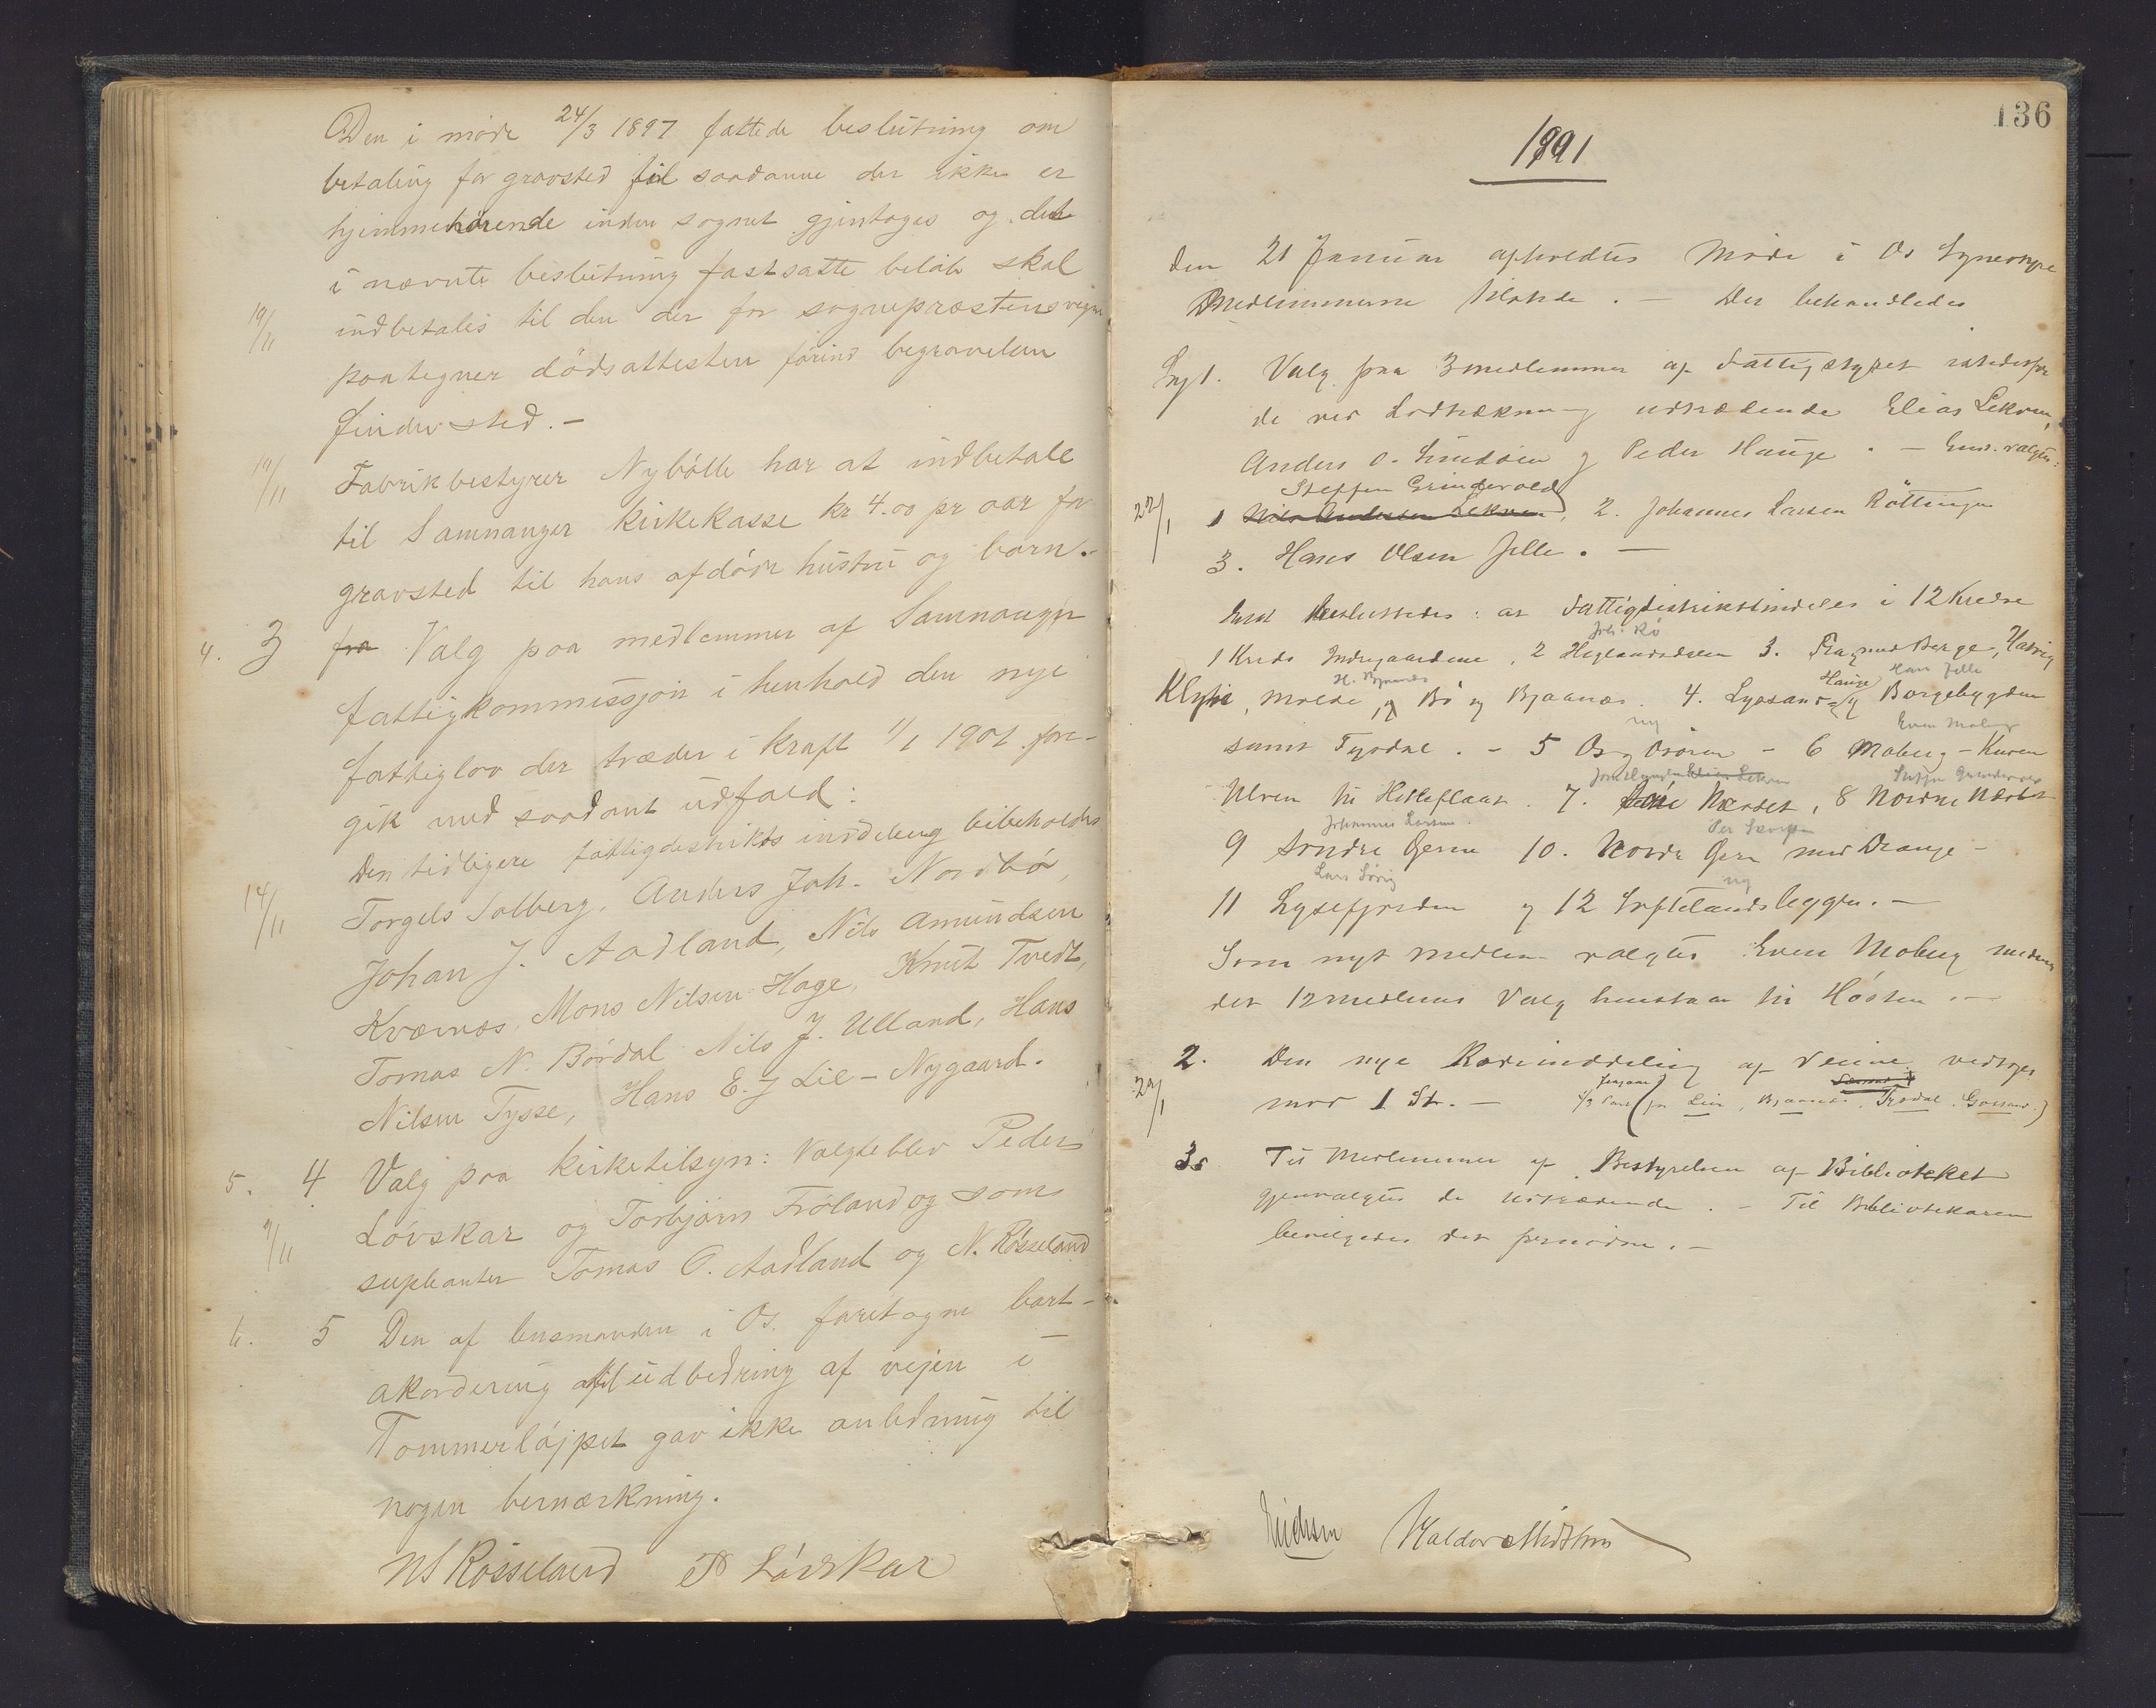 Den i møde 24/3 1897 fattede beslutning om
betaling for gravsted til saadanne der ikke er
hjemmehørende inden sognet gjentages og det
i nævnte beslutning fastsatte beløb skal
19/11 indbetales til den der for sognepræstens vegne
paategner dødsattesten førind begravelsen
finder sted.-
19/11 Fabrikbestyrer Nybølle har at indbetale
til Samnanger kirkekasse kr 4.00 pr aar for
gravsted til hans afdøde hustru og barn.-
4. 3 fra Valg paa medlemmer af Samnanger
fattigkommissjon i henhold den nye
fattiglov der træder i kraft 1/1 1901 fore-
gik med saadant udfald:
Den tidligere fattigdistrikts inddeling bibeholdes
14/11 Torgels Solberg, Anders Joh. Nordbø,
Johan J. Aadland, Nils Amundsen
Kværnes, Mons Nilsen Hage, Knut Tvedt,
Tomas N. Børdal Nils J. Ulland, Hans
Nilsen Tysse, Hans E. J Lie - Nygaard.
5. 4 Valg paa kirketilsyn: Valgte blev Peder
9/11 Løvskar og Torbjørn Frøland og som
supleanter Tomas O. Aadland og N. Røsseland
6. 5 Den af lensmanden i Os foretagne bort-
akordering af til udbedring af vejen i
Tommerløjpet gav ikke anledning til
nogen bemærkning.
NS Røsseland P Løvskar
136
1891
Den 21 Januar afholdtes Møde i Os
Medlemmerne tilstede. - Der behandledes
Sag 1. Valg paa 3 medlemmer af Fattigstyret istedetfor
de ved Lodtrækning udtrædende Elias Lekven,
Anders O. Lindøen og Peder Hauge. - Enst. valgtes:
Steffen Grindevold
22/1 1 Nils Andersen Lekven, 2. Johannes Larsen Røttingen
3. Hans Olsen Jelle. -
Enst besluttedes: at Fattigdistriktinddeles i 12 Kredse
Joh: Rø
1 Kreds Indregaardene, 2 Heglandsdalen 3. med Berge, Hatvig
H. Bjaanes Hauge Hans Jelle
Klyve, Molde, og Bø og Bjaanæs. 4. Lyssand og Borgebygden
ny Even Moberg
samt Tyssdal. - 5 Os og Osøren - 6 Moberg - Kuven
Elias Lekven Steffen Grindevold
Ulven til Hetleflaat. 7. Mærdet, 8 Nordre
Johannes Larsen Per
9 Søndre Gjeren 10. Nordre Gjeren med Drange -
Lars Sørig ny
11 Lysefjorden og 12 Søftelandsleggen. -
Som nyt medlem valgtes Even Moberg medens
det 12 medlems Valg henstaar til Høsten. -
2. Den nye Rodeinddeling af Veiene vedtoges
27/1 mod 1 St. - (for Lien, Bjaanes, Tysdal, )
3. Til Medlemmer af Bestyrelsen af Biblioteket
gjenvalgtes de udtrædende. - Til Bibliotekaren
bevilgedes det fornødne. -
Haldor Midthus